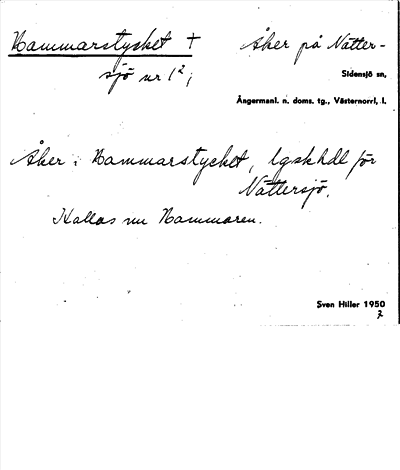 Hammarstycket + Åker på Nätter-
sjö nr 1²;
Sidensjö sn,
Ångermanl. n. doms. tg., Västernorrl, l.
Åker: Hammarstycket, lgskhdl för
Nättersjö.
Kallas nu Hammaren.
Sven Hiller 1950
7